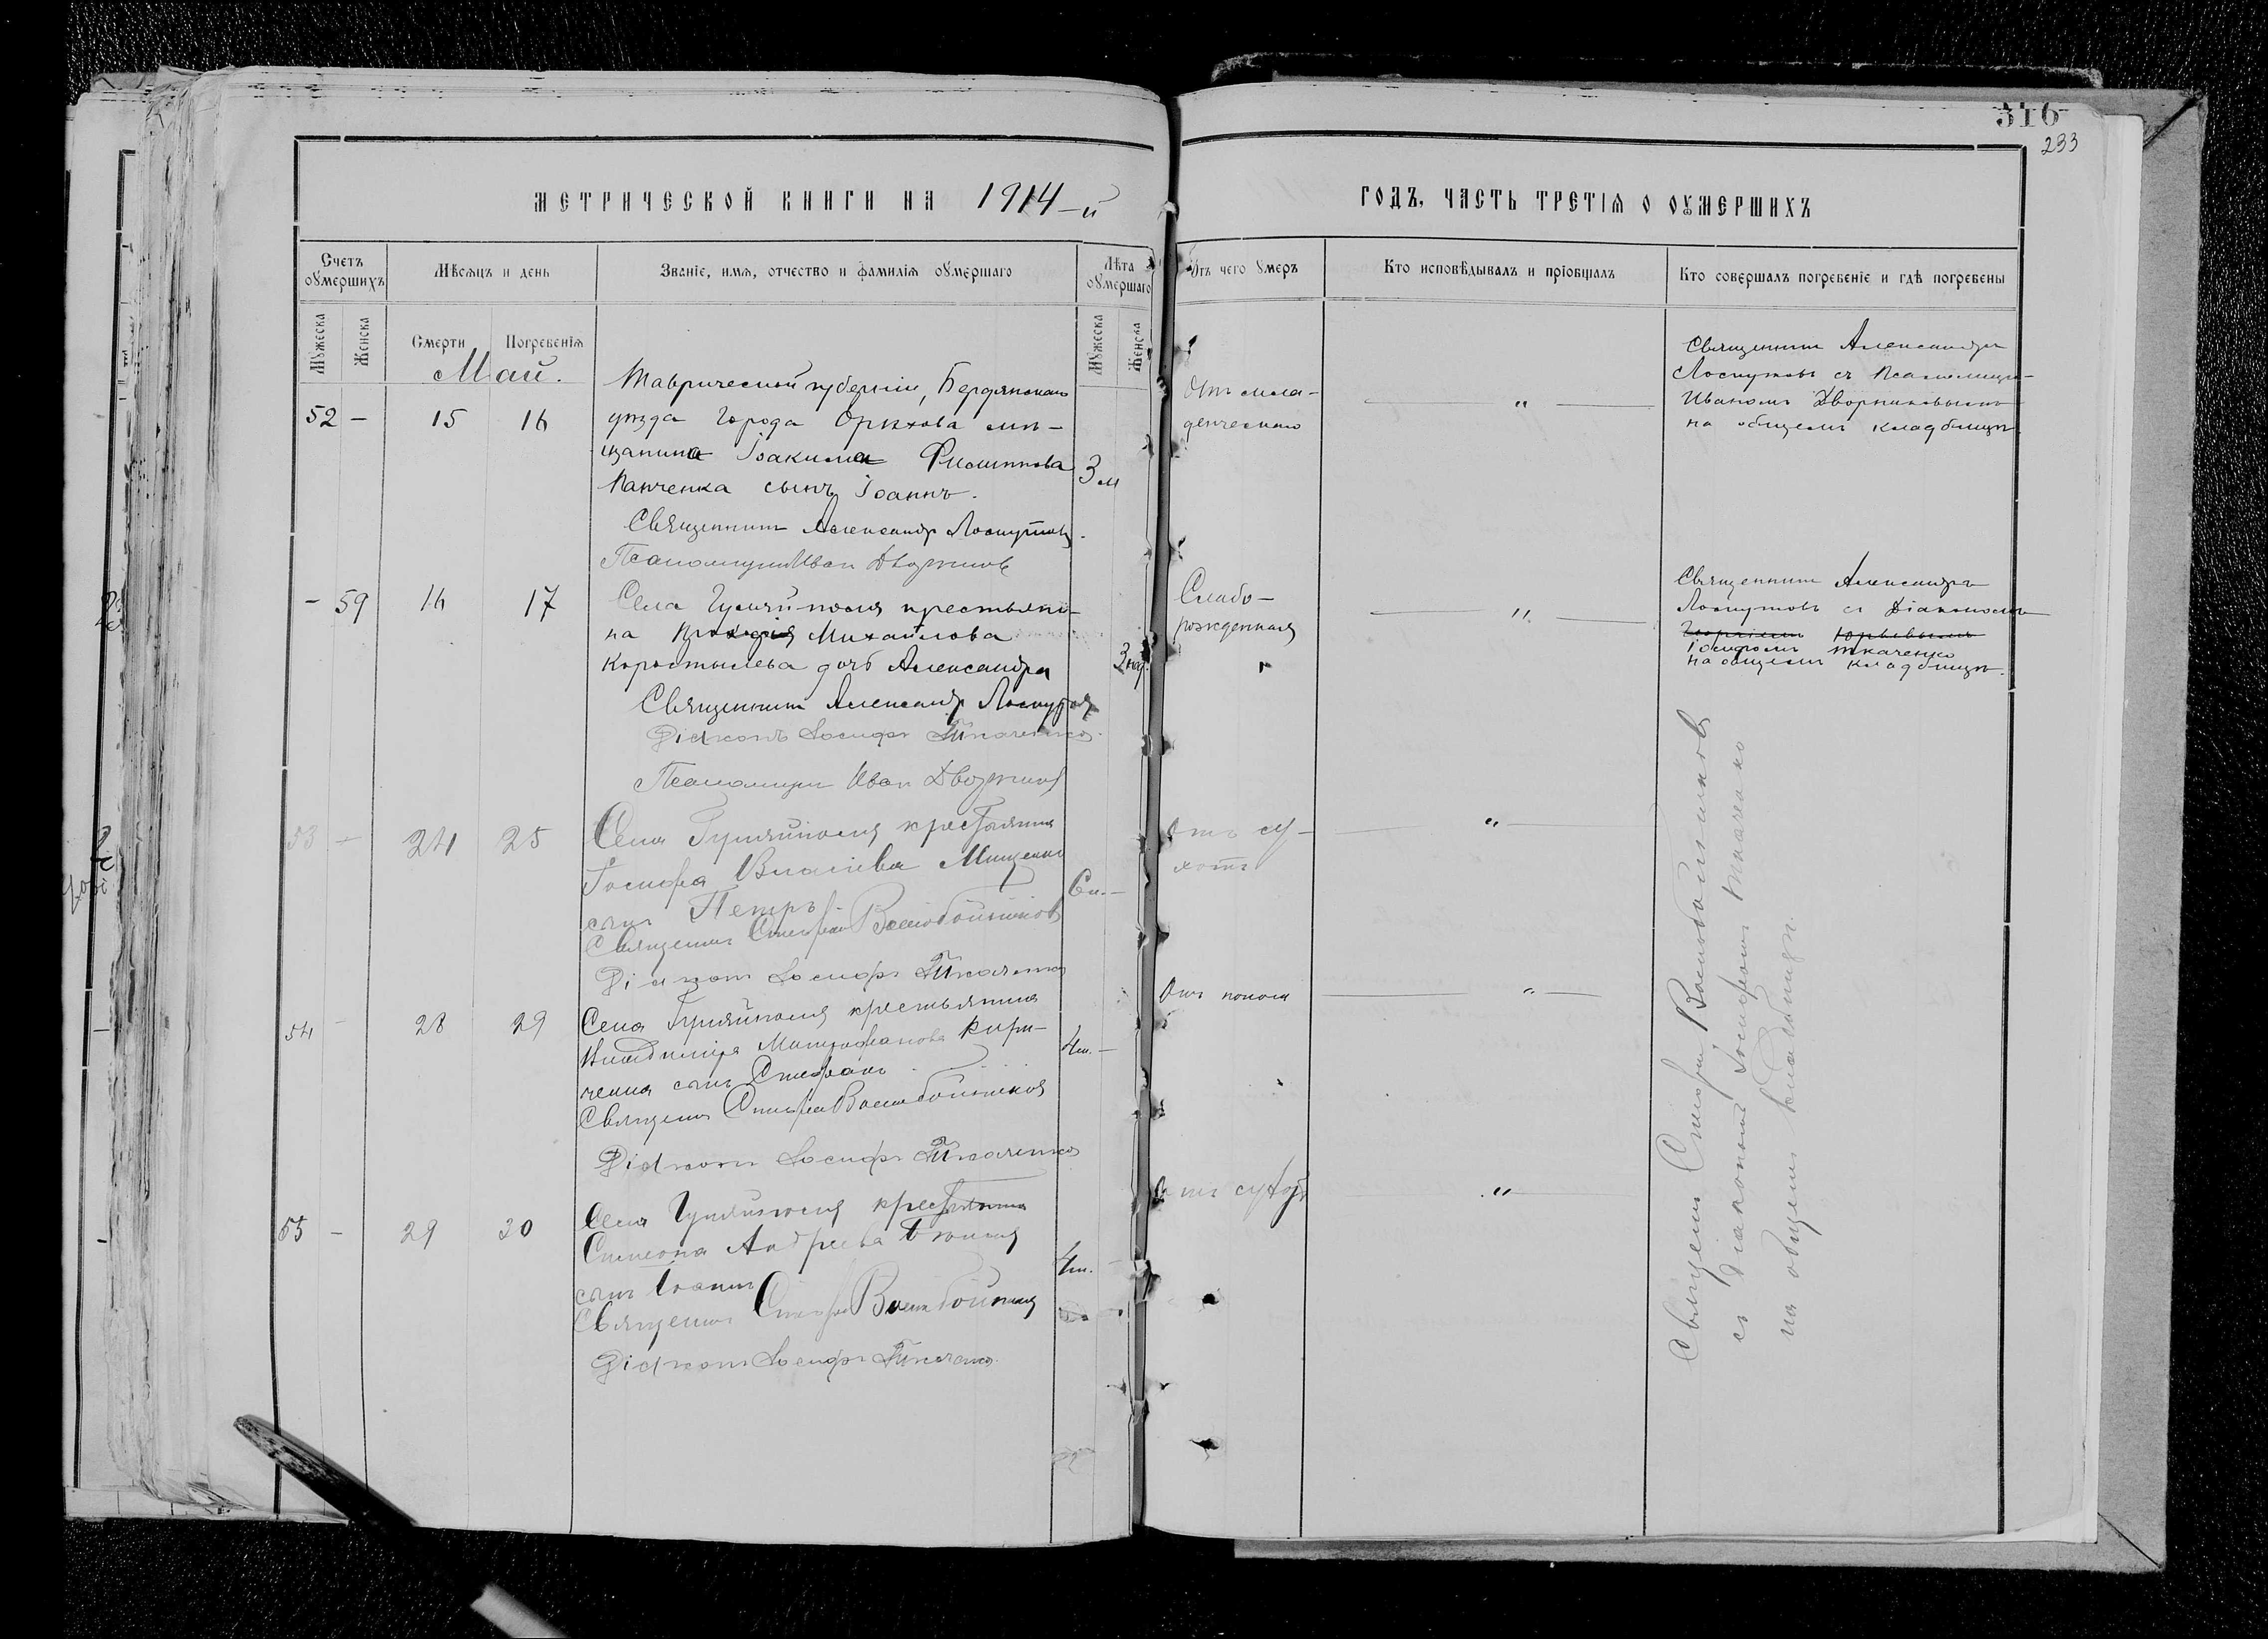 316
233
МЕТРИЧЕСКОЙ КНИГИ НА 1914-й
ГОДЪ, ЧАСТЬ ТРЕТІѦ О ОУМЕРШИХЪ
Счетъ оумершихъ
Мѣсяцъ и день
Званіе, имя, отчество и фамилія оумершаго
Лѣта оумершаго
Отъ чего умеръ
Кто исповѣдывалъ и пріобщалъ
Кто совершалъ погребеніе и гдѣ погребены
Мужеска
Женска
Смерти
Погребенія
Мужеска
Женска
Май.
52 -
15
16
Таврической губерніи, Бердянскаго
уѣзда города Орѣхова мѣ-
щанина Іоакима Филиппова
Панченка сынъ Іоаннъ.
3 м
Отъ мла-
денческаго
"
Священникъ Александръ
Лоскутовъ съ Псаломщи-
Иваномъ Дворниковымъ
на общемъ кладбищѣ.
Священникъ Александр Лоскутовъ.
Псаломщикъ Иван Дворников
- 59
16
17
Села Гуляйполя крестьяни-
на Михайлова
Коростылева дочь Александра
3 нед.
Слабо-
рожденная
"
Священникъ Александръ
Лоскутовъ съ Діакономъ
Георгіемъ Юрьевымъ
Іосифомъ Ткаченко
на общемъ кладбищѣ.
Священникъ Александр Лоскутовъ
Діаконъ Іосифъ Ткаченко.
Псаломщикъ Иван Дворников
53 -
24
25
Села Гуляйполя крестьянина
Іосифа Власіева Мищенко
сынъ Петръ.
6 м. -
Отъ су-
хотъ
"
Священникъ Стефанъ Воскобойников
Діаконъ Іосифъ Ткаченко
54 -
28
29
Села Гуляйполя крестьянина
Владиміра Митрофанова Кири-
ченка сынъ Стефанъ.
4 м. -
Отъ поноса
"
Священникъ Стефанъ Воскобойников
Діаконъ Іосифъ Ткаченко
55 -
29
30
Села Гуляйполя крестьянина
Симеона Андреева
сынъ Іоаннъ
4 м. -
Отъ сухотъ
"
Священникъ Стефанъ Воскобойников
Діаконъ Іосифъ Ткаченко.
Священникъ Стефанъ Воскобойниковъ
съ діакономъ Іосифомъ Ткаченко
на общемъ кладбищѣ.